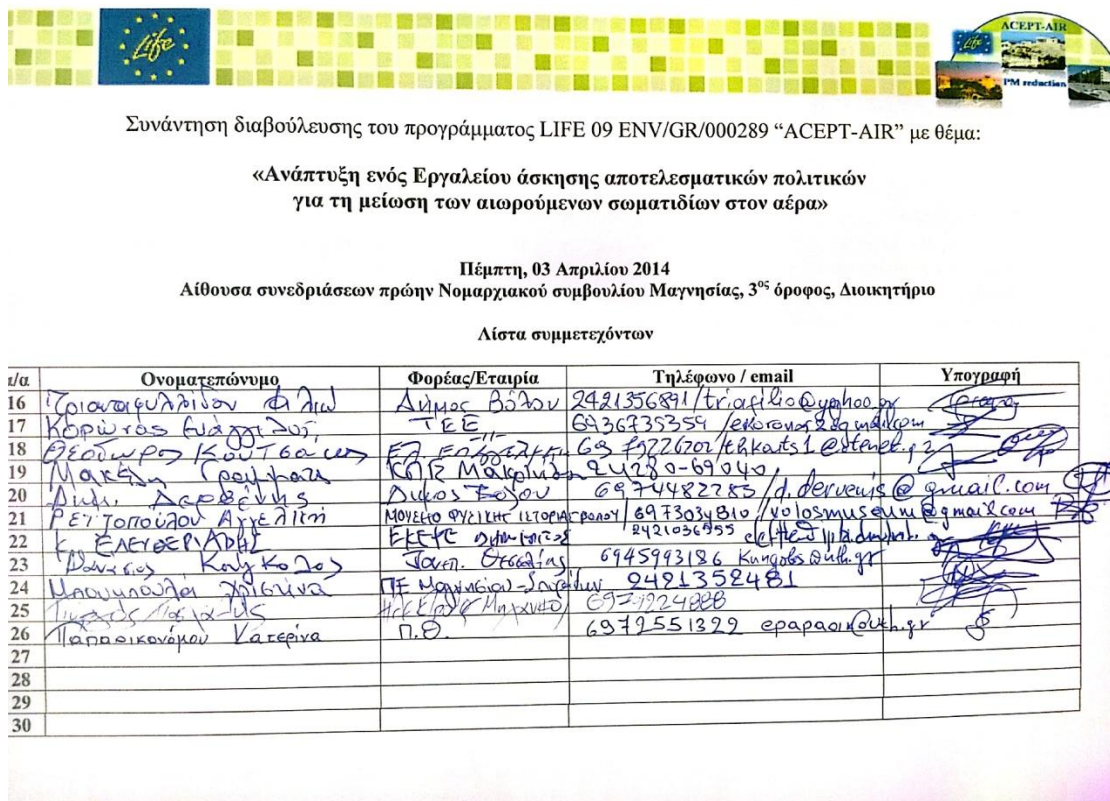 Life
ACEPT-AIR
Life
PM reduction
Συνάντηση διαβούλευσης του προγράμματος LIFE 09 ENV/GR/000289 “ACEPT-AIR” με θέμα:
«Ανάπτυξη ενός Εργαλείου άσκησης αποτελεσματικών πολιτικών
για τη μείωση των αιωρούμενων σωματιδίων στον αέρα»
Πέμπτη, 03 Απριλίου 2014
Αίθουσα συνεδριάσεων πρώην Νομαρχιακού συμβουλίου Μαγνησίας, 3ος όροφος, Διοικητήριο
Λίστα συμμετεχόντων
α/α Ονοματεπώνυμο Φορέας/Εταιρία Τηλέφωνο / email Υπογραφή
16 Τριανταφυλλίδου Φιλιώ Δήμος Βόλου 2421356891/triafilio@yahoo.gr
17 Κορώνας Ευάγγελος ΤΕΕ 6936735354
18 Θεόδωρος
19 ΚΠΕ 24280-69040
20 Δημ. Δερβένης Δήμος Βόλου 6974482283/d.dervenis@gmail.com
21 Ρεϊζοπούλου Αγγελική ΜΟΥΣΕΙΟ ΦΥΣΙΚΗΣ ΙΣΤΟΡΙΑΣ ΒΟΛΟΥ/6973034810/volosmuseum@gmail.com
22 Κ. ΕΛΕΥΘΕΡΙΑΔΗΣ ΕΚΕΦΕ Δημόκριτος
23 Κουγκολος Παν. Θεσσαλίας 6945993186 kungolos@uth.gr
24 Χριστίνα ΠΕ Μαγνησίας 2421352481
25
26 Παπαοικονόμου Κατερίνα Π.Θ. 6972551322 epapaoik@uth.gr
27
28
29
30